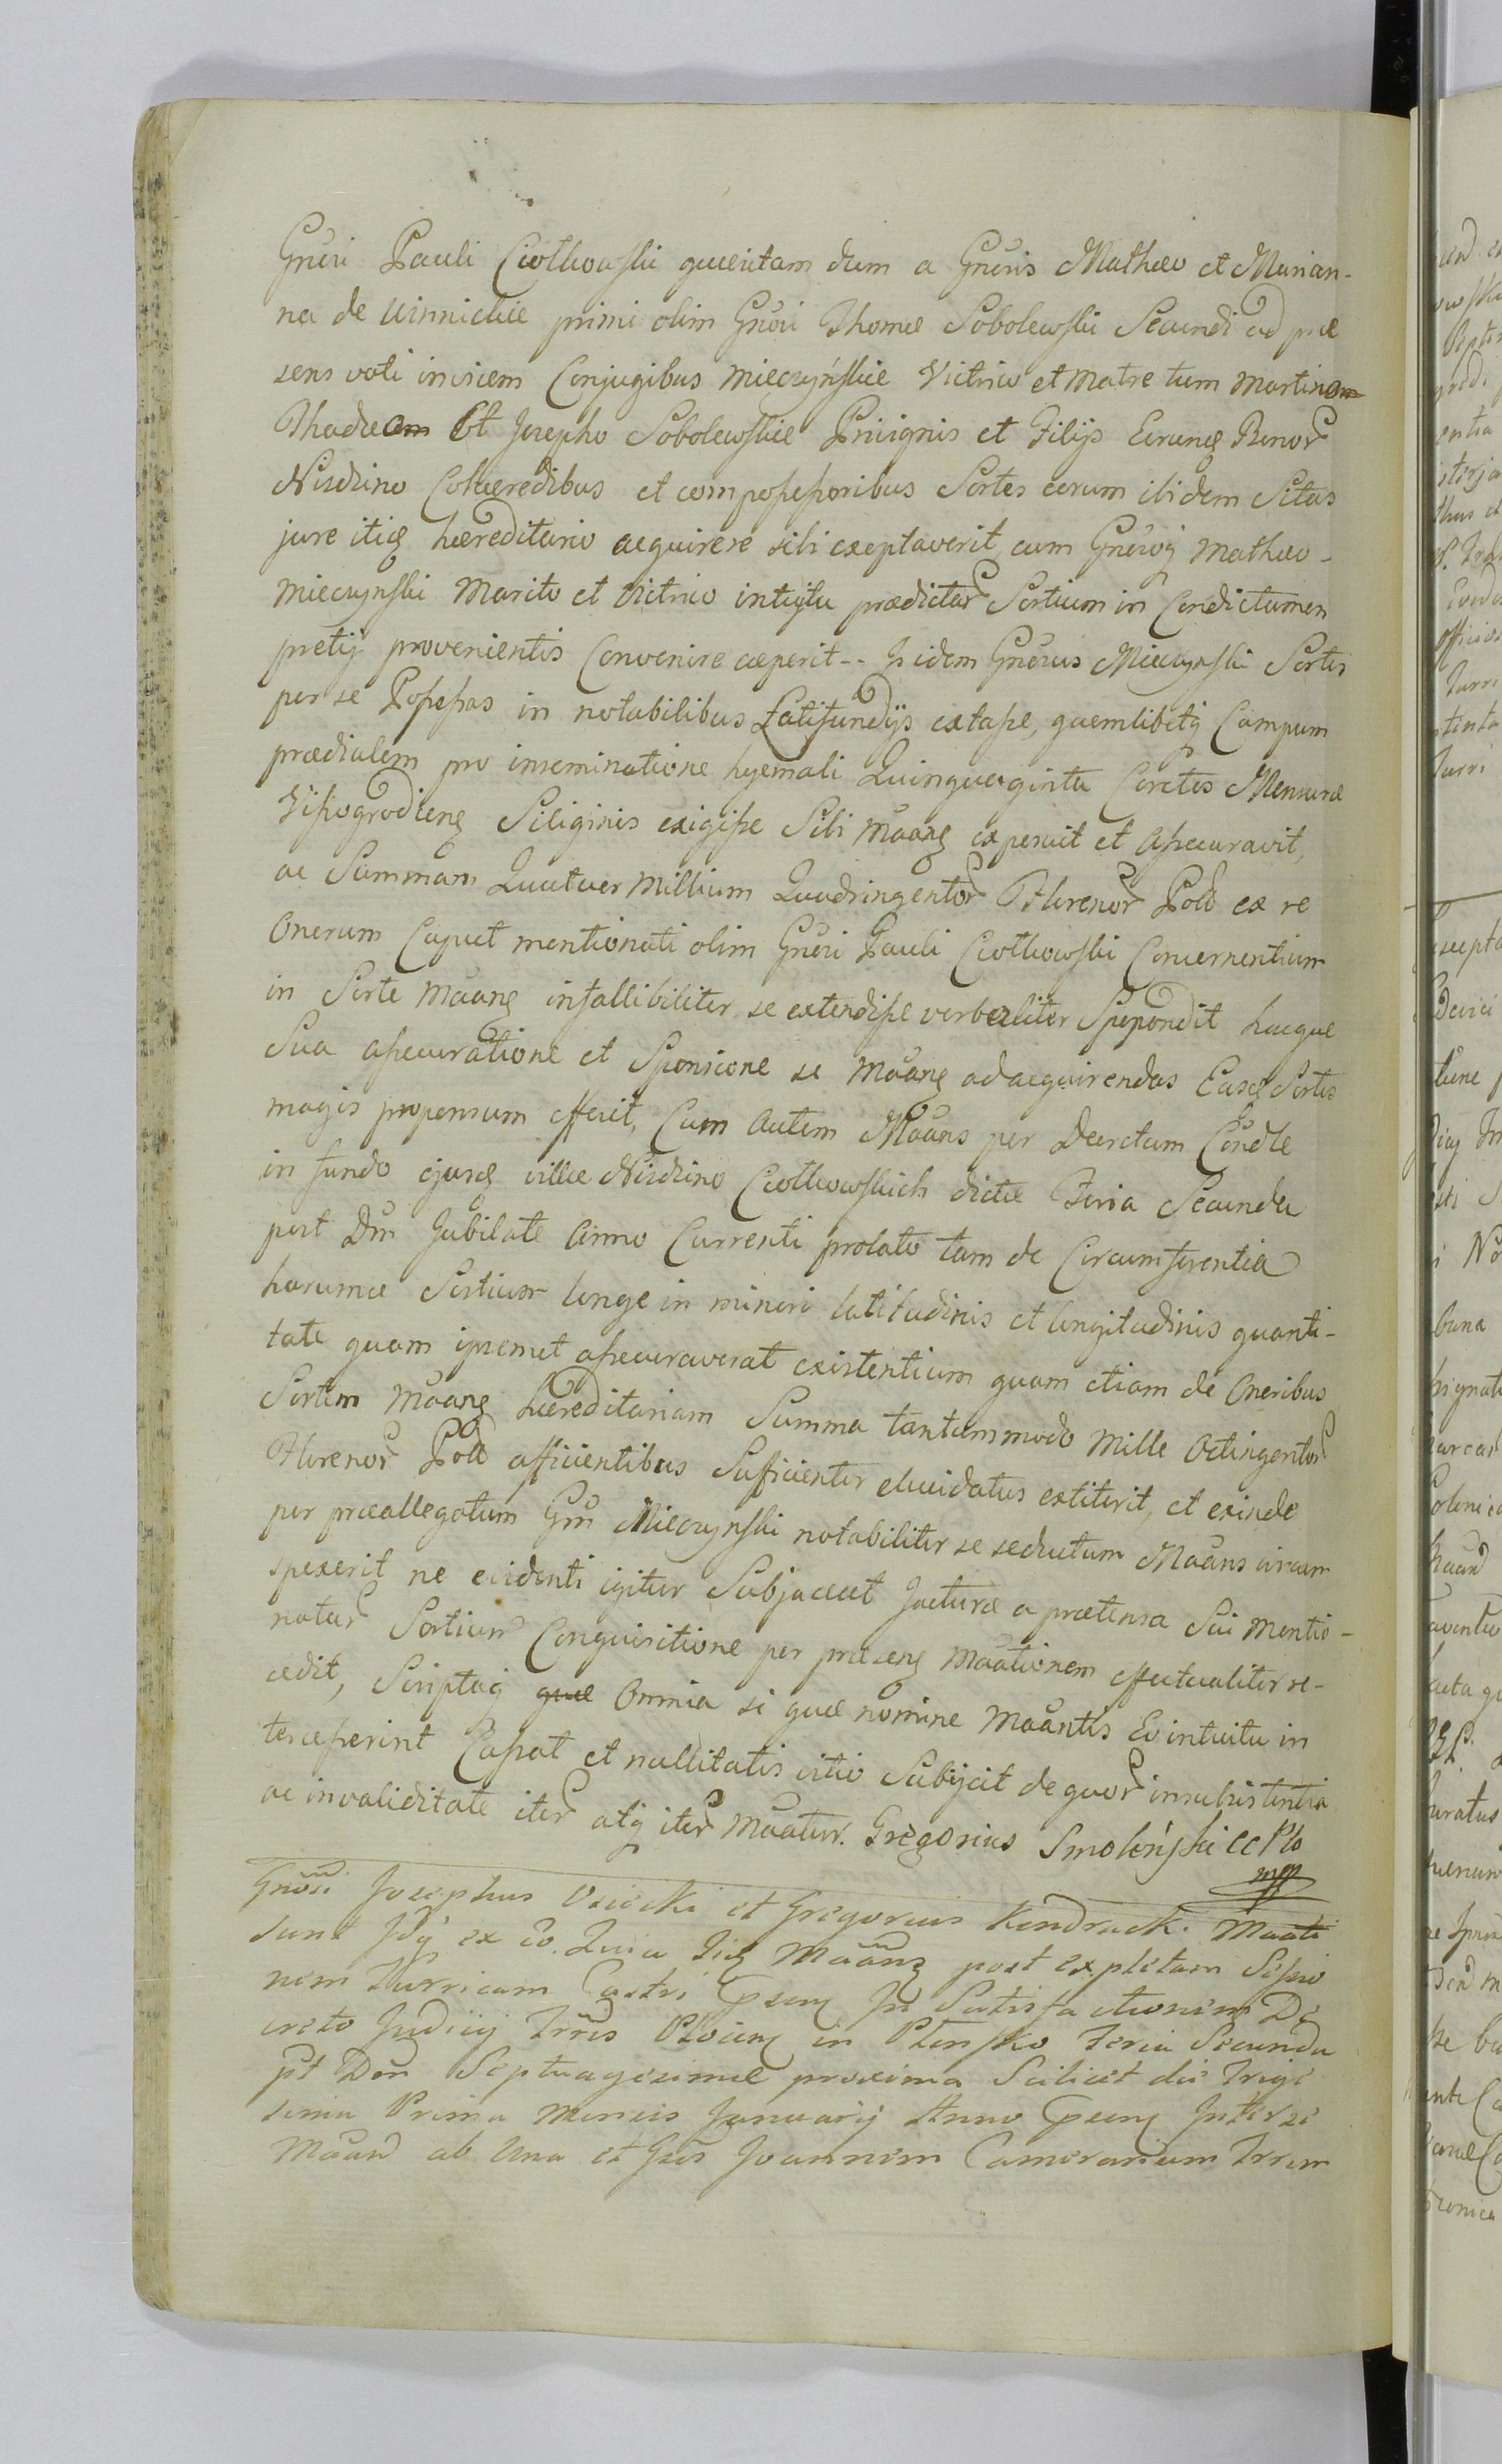 Gnŭri Pauli Ciotkowski queritam dum a Gnŭris Mathæo et Marian-
na de Winnickie primi olim Gnŭri Thomæ Sobolewski Secundi ad præ
sens voti invicem Conjugibus Mieczyńskie Victrico et Matre tum Martinom
Thadæom Et Josepho Sobolewskie Privignis et Filijs Eorumq Bonor
Nisdzino Cohæredibus et compossessoribus Sortes eorum ibidem Sitas
jure itiq hæreditario acquirere sibi exeptaverit, cum Gnŭroq Mathæo
Mieczynski Marito et Vitrico intuitu prædictar Sortium in Condictamen
pretij provenientis Convenire cæperit -- Is idem Gnŭrus Mieczynski Sortes
per se Possessas in notabilibus Latifundijs extasse, quemlibetq Campum
prædialem pro inseminatione hyemali Quinquaginta Coretos Mensuræ
Vissogrodieng Siliginis exigisse Sibi Mŏang exposuit et Assecuravit,
ac Summam Quatuor Millium Quadringentor Florenor Pold ex re
Onerum Caput mentionati olim Gnŭri Pauli Ciotkowski Concernentium
in Sorte Mŏang infallibiliter se extendisse verbaliter Spopondit hacque
Sua assecuratione et Sponsione se Mŏang ad acquirendas Easq Sortes
magis propensum effecit, Cum Autem Mŏans per Decretum Cŏndle
in fundo ejusq villæ Nisdzino Ciotkowskich dictæ Feria Secunda
post Dm Jubilate Anno Currenti prolato tam de Circumferentia
harumce Sortium longe in minori latitudinis et longitudinis quanti-
tate quam ipsemet assecuraverat existentium quam etiam de Oneribus
Sortem Mŏang hæreditariam Summa tantummodo Mille Octingentor
Florenor Pold afficientibus Sufficienter elucidatus extiterit, et exinde
per præallegatum Gm Mieczynski notabiliter se seductum Mŏans circum
spexerit, ne evidenti igitur Subjaceat Jacturæ a prætensa Sui mentio-
natar Sortium Conquisitione per præseng Mŏationem effectualiter re-
cedit, Scriptaq Omnia si quæ nomine Mŏantis Eo intuitu in
tercesserint Cassat et nullitatis vitio Subijcit de quor insubsistentia
ac invaliditate iter atq iter Mŏatur. Gregorius Smoleński CC Plo
mpp
Gnŏsi Josephus Osiecki et Gregorius Kendracki Mŏati
sunt Idq ex eo. Quia Iiq Mŏang post expletam Sessio
nem Turricam Castri Pseng In Satisfactionem De
creto Judicij Trris Plocieng in Plonsko Feria Secunda
pt Don Septuagesimæ proxima Scilicet die Trige
sima Prima Mensis Januarij Anno Pseng Inter se
Mŏand ab Una et Gsos Joannem Camerarium Trrem